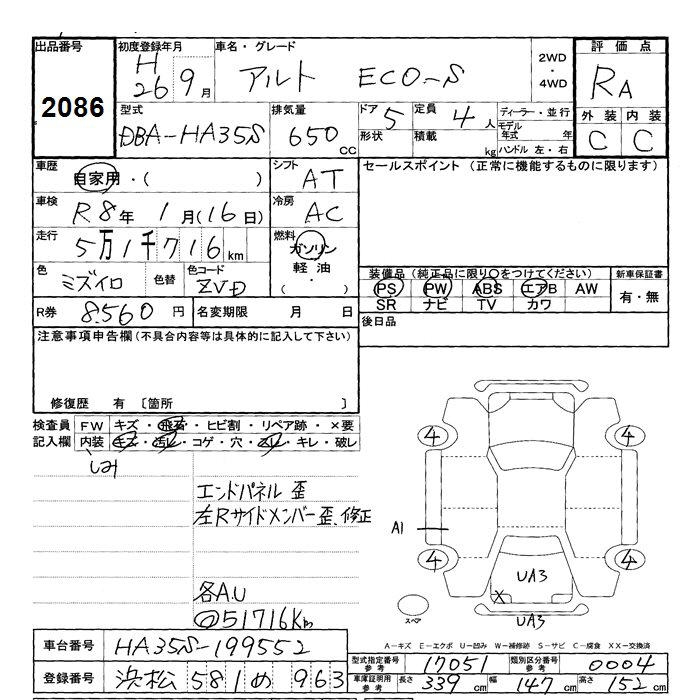 出品番号 2086
初度登録年月 H 26 9月
車名・グレード アルト ECO-S
2WD ・ 4WD
評価点 RA
外装 内装
C C
型式 DBA-HA35S
排気量 650 CC
ドア 5 定員 4人
形状 積載 kg
ディーラー・並行
モデル年式 年
ハンドル 左・右
車歴 自家用・( )
シフト AT
セールスポイント (正常に機能するものに限ります)
車検 R8年 1月(16日)
冷房 AC
走行 5万1千716km
燃料 ガソリン
軽油
( ・ )
色 ミズイロ 色替 色コード ZVD
装備品 (純正品に限り○をつけてください) 新車保証書
PS PW ABS エアB AW 有・無
SR ナビ TV カワ
R券 8,560円 名変期限 月 日
後日品
注意事項申告欄 (不具合内容等は具体的に記入して下さい)
修復歴 有 〔箇所 〕
検査員 FW キズ・飛石・ヒビ割・リペア跡・×要
記入欄 内装 キズ・汚レ・コゲ・穴・スレ・キレ・破レ
シミ
エンドパネル歪
左Rサイドメンバー歪、修正
各A.U
@51716Km
4 4
A1
4 4
UA3
X
スペア
UA3
A-キズ E-エクボ U-凹み W-補修跡 S-サビ C-腐食 XX-交換済
車台番号 HA35S-199552
登録番号 浜松 581 め 963
型式指定番号 参考 17051 類別区分番号 参考 0004
車庫証明用 参考 長さ 339cm 幅 147cm 高さ 152cm